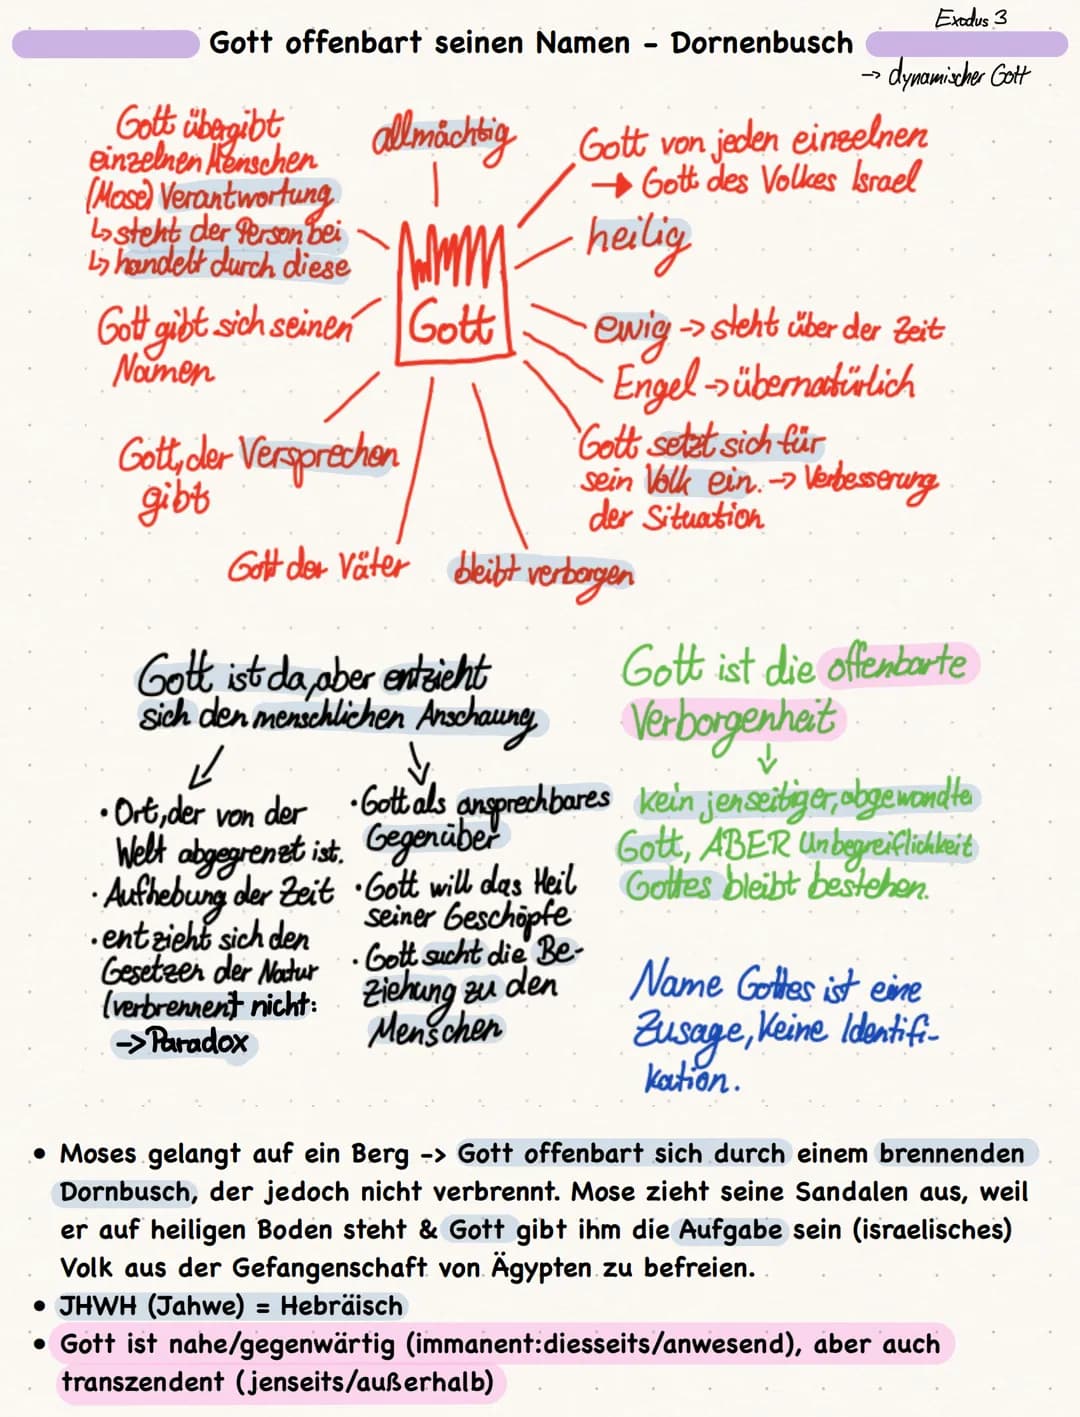 Exodus 3
Gott offenbart seinen Namen - Dornenbusch
-> dynamischer Gott
Gott übergibt
einzelnen Menschen
(Mose) Verantwortung
↳ steht der Person bei
↳ handelt durch diese
allmächtig
Gott von jeden einzelnen
→ Gott des Volkes Israel
heilig
Gott
Gott gibt sich seinen
Namen
ewig -> steht über der Zeit
Engel -> übernatürlich
Gott, der Versprechen
gibt
Gott setzt sich für
sein Volk ein. -> Verbesserung
der Situation
Gott der Väter
bleibt verborgen
Gott ist da, aber entzieht
sich den menschlichen Anschaung
• Ort, der von der
Welt abgegrenzt ist.
• Aufhebung der Zeit
• entzieht sich den
Gesetzen der Natur
(verbrennen† nicht:
-> Paradox
• Gott als ansprechbares
Gegenüber
• Gott will das Heil
seiner Geschöpfe
• Gott sucht die Be-
ziehung zu den
Menschen
Gott ist die offenbarte
Verborgenheit
↓
kein jenseitiger, abgewandte
Gott, ABER Unbegreiflichkeit
Gottes bleibt bestehen.
Name Gottes ist eine
Zusage, Keine Identifi-
kation.
• Moses gelangt auf ein Berg -> Gott offenbart sich durch einem brennenden
Dornbusch, der jedoch nicht verbrennt. Mose zieht seine Sandalen aus, weil
er auf heiligen Boden steht & Gott gibt ihm die Aufgabe sein (israelisches)
Volk aus der Gefangenschaft von Ägypten zu befreien.
• JHWH (Jahwe) = Hebräisch
• Gott ist nahe/gegenwärtig (immanent:diesseits/anwesend), aber auch
transzendent (jenseits/außerhalb)